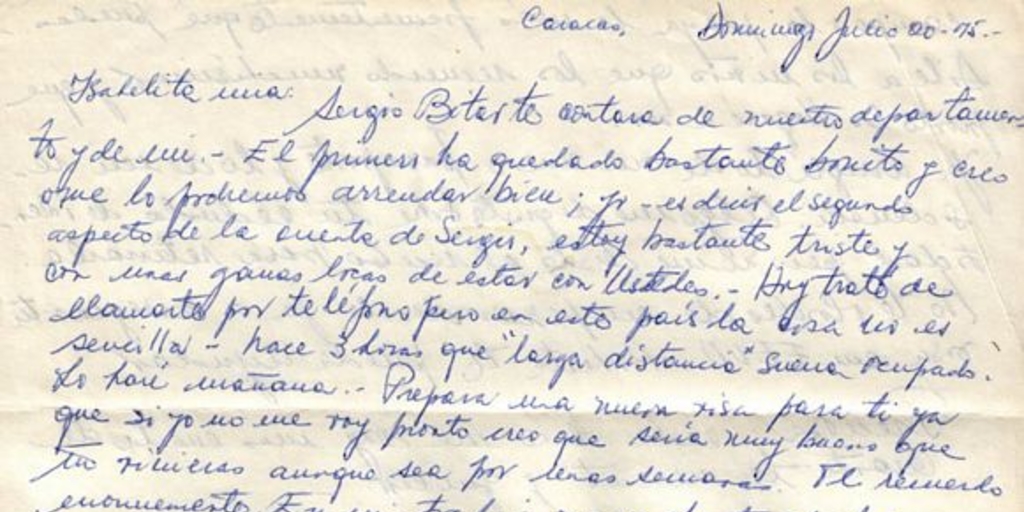 Caracas, Domingo Julio 20-75.-
Isabelita mia:
Sergio Bitar te contara de nuestro departamen-
to y de mi.- El primero ha quedado bastante bonito y creo
que lo podremos arrendar bien; yo - es decir el segundo
aspecto de la cuenta de Sergio, estoy bastante triste y
con unas ganas locas de estar con Ustedes.- Hoy traté de
llamarte por teléfono pero en este país la cosa no es
sencilla - hace 3 horas que "larga distancia" suena ocupado.
Lo haré mañana.- Prepara una nueva visa para ti ya
que si yo no me voy pronto creo que sería muy bueno que
tu vinieras aunque sea por unas semanas. Te recuerdo
enormemente. En mi